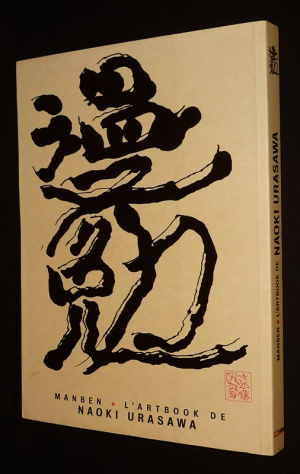 漫
勉
MANBEN • L'ARTBOOK DE
NAOKI URASAWA
漫勉
MANBEN • L'ARTBOOK DE NAOKI URASAWA